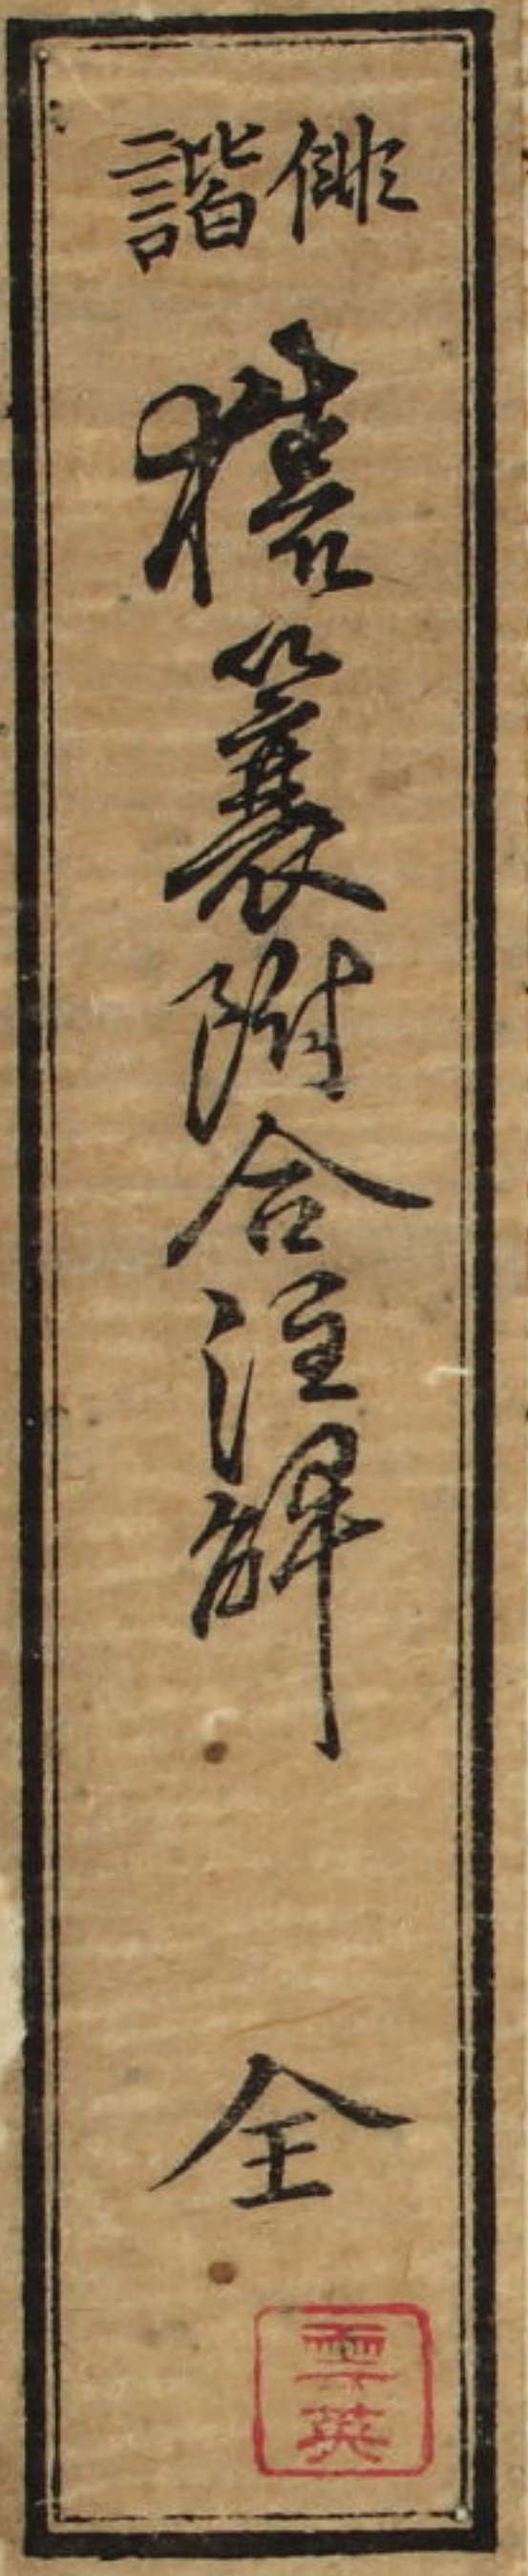 俳諧
猿簑附合注解
全
雲英